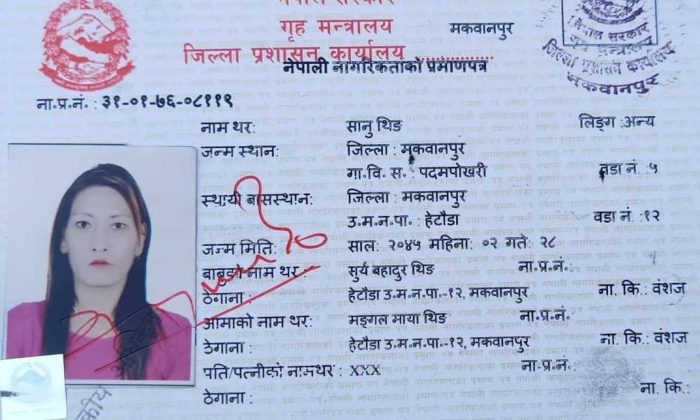 नेपाल सरकार
गृह मन्त्रालय
मकवानपुर
जिल्ला प्रशासन कार्यालय
नेपाली नागरिकताको प्रमाणपत्र
नेपाल सरकार
गृह मन्त्रालय
जिल्ला प्रशासन कार्यालय
मकवानपुर
ना.प्र.नं. : ३१-०१-७६-०८११९
नाम थर: सानु थिङ लिङ्ग : अन्य
जन्म स्थान: जिल्ला : मकवानपुर
गा.वि. स.: पदमपोखरी वडा नं. : ५
स्थायी बासस्थान: जिल्ला : मकवानपुर
उ.म.न.पा.: हेटौडा वडा नं : १२
जन्म मिति: साल: २०४५ महिना: ०२ गते: २८
बाबुको नाम थर : सुर्य बहादुर थिङ ना.प्र.नं.:
ठेगाना : हेटौडा उ.म.न.पा.-१२, मकवानपुर ना. कि.: वंशज
आमाको नाम थर: मङ्गल माया थिङ ना.प्र.नं.:
ठेगाना : हेटौडा उ.म.न.पा.-१२, मकवानपुर ना. कि.: वंशज
पति/पत्नीको नामथर : XXX ना.प्र.नं.:
ठेगाना : ना. कि.: